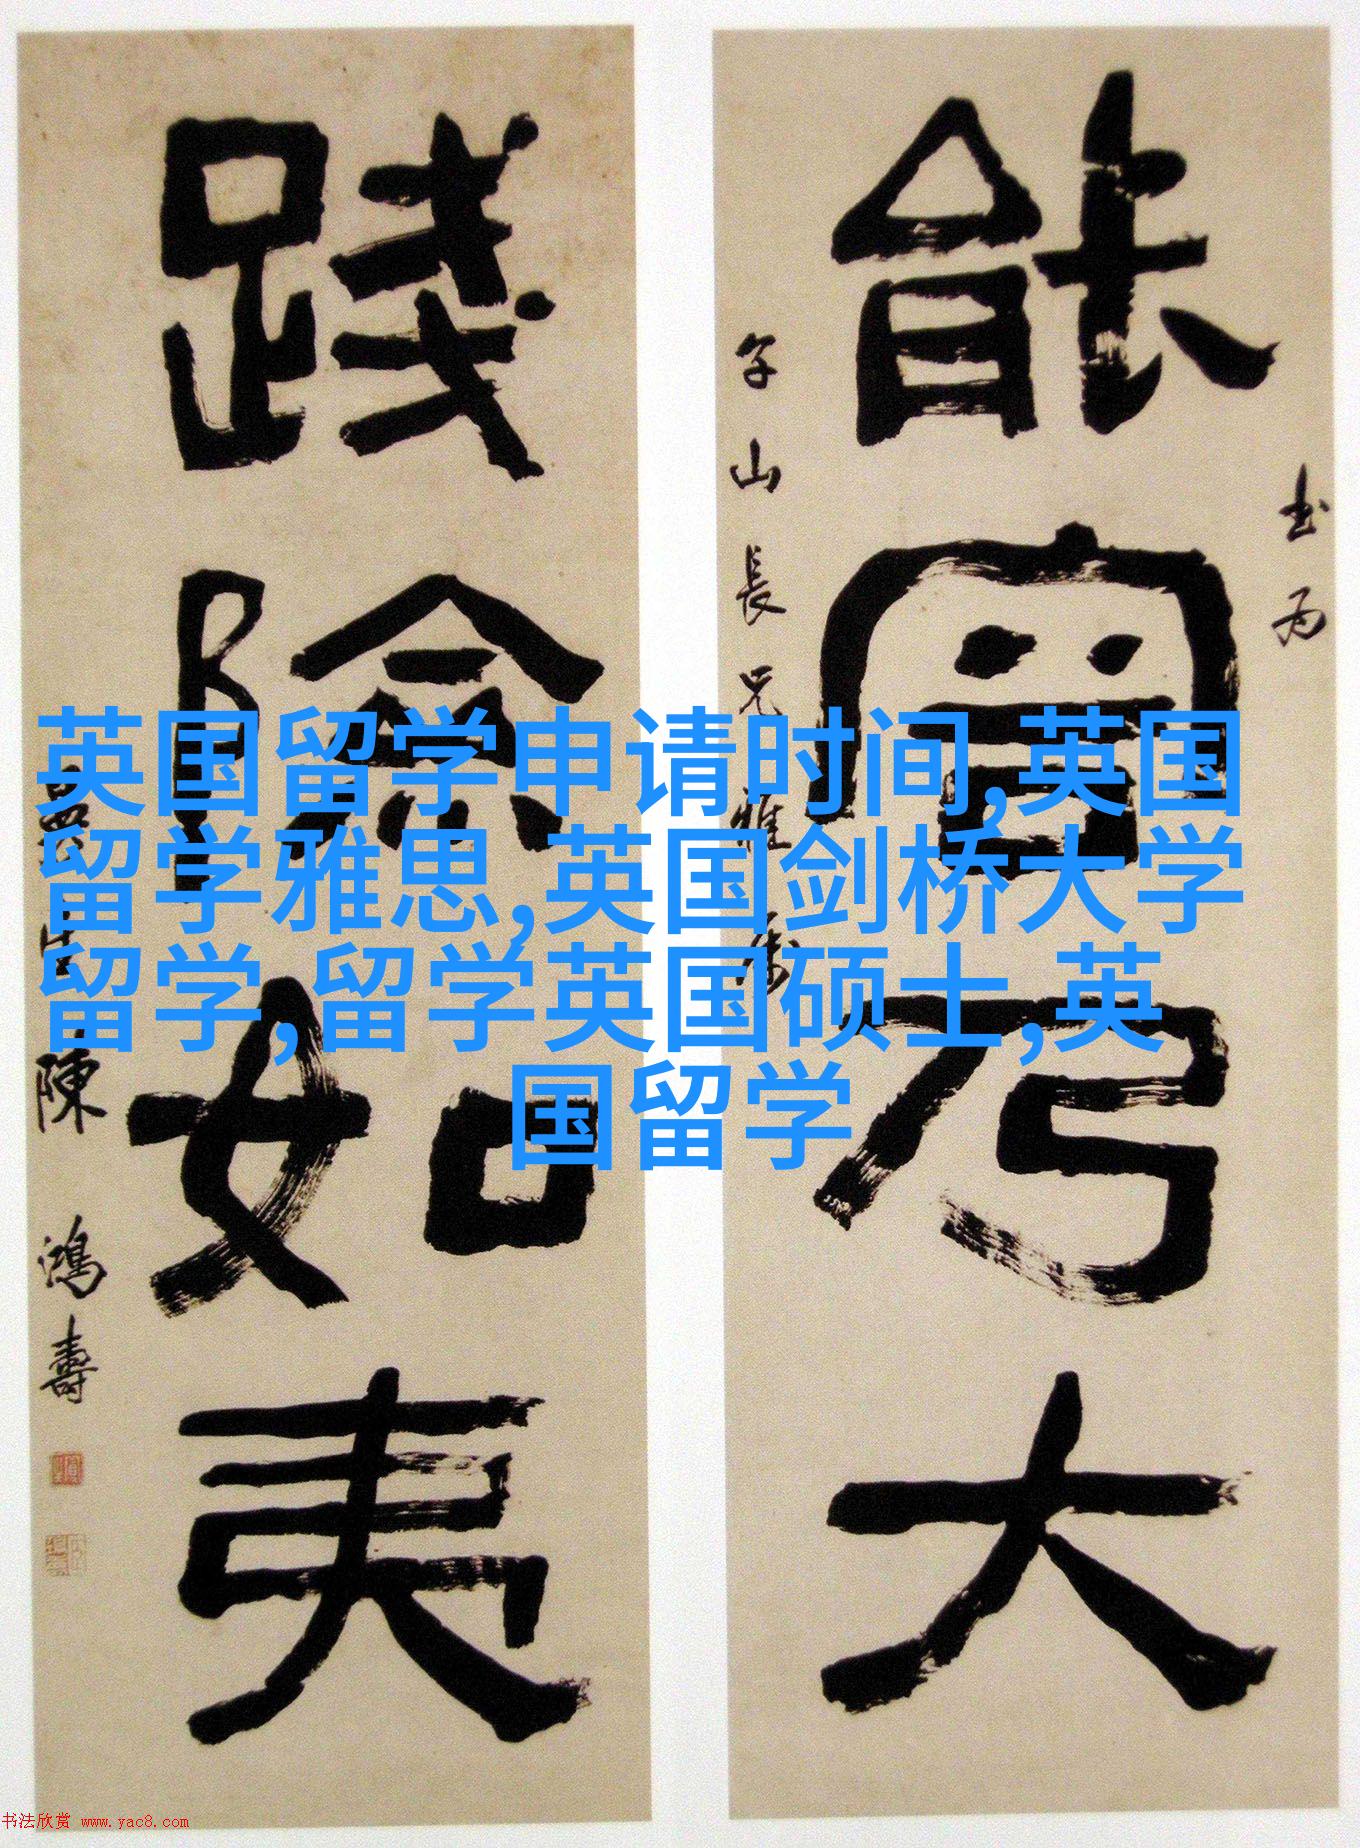 能官乃大
书为
子山長兄雅属
践险如夷
陳鴻壽
英国留学申请时间,英国
留学雅思,英国剑桥大学
留学,留学英国硕士,英
国留学
书法欣赏 www.yac8.com